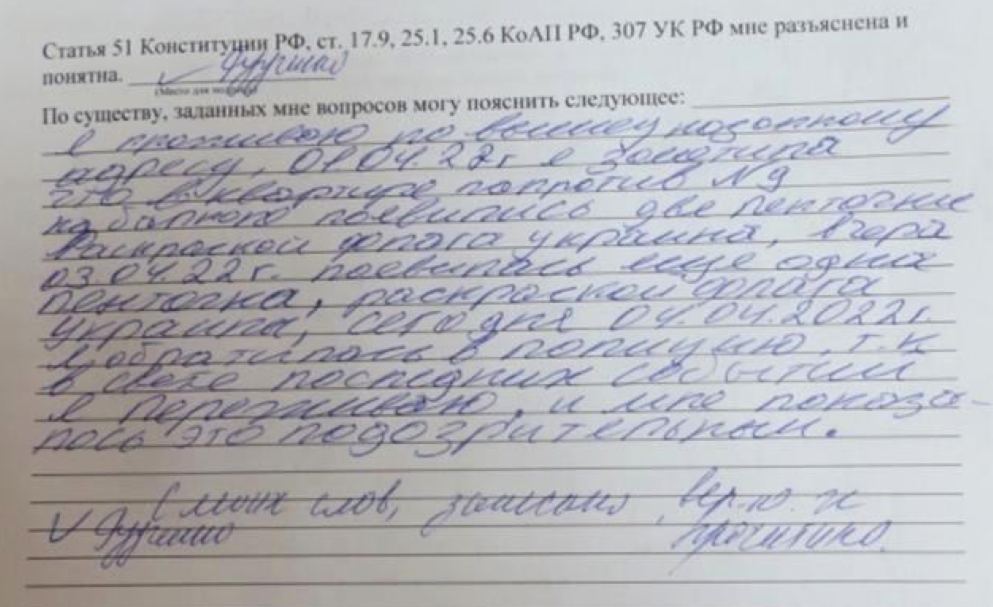 Статья 51 Конституции РФ, ст. 17.9, 25.1, 25.6 КоАП РФ, 307 УК РФ мне разъяснена и
понятна.
(Место для подписи)
По существу, заданных мне вопросов могу пояснить следующее:
я проживаю по вышеуказанному
адресу, 01.04.22г я заметила
что в квартире напротив №9
на балконе появились две ленточки
раскраской флага украина, вчера
03.04.22г. появилась еще одна
ленточка, раскраской флага
украина, сегодня 04.04.2022г.
я обратилась в полицию, т.к
в свете последних событий
я переживаю, и мне показа-
лось это подозрительным.
С моих слов, записано верно и
прочитано.